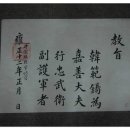 教旨
韓範錫爲
嘉善大夫
行忠武衛
副護軍者
年正月日